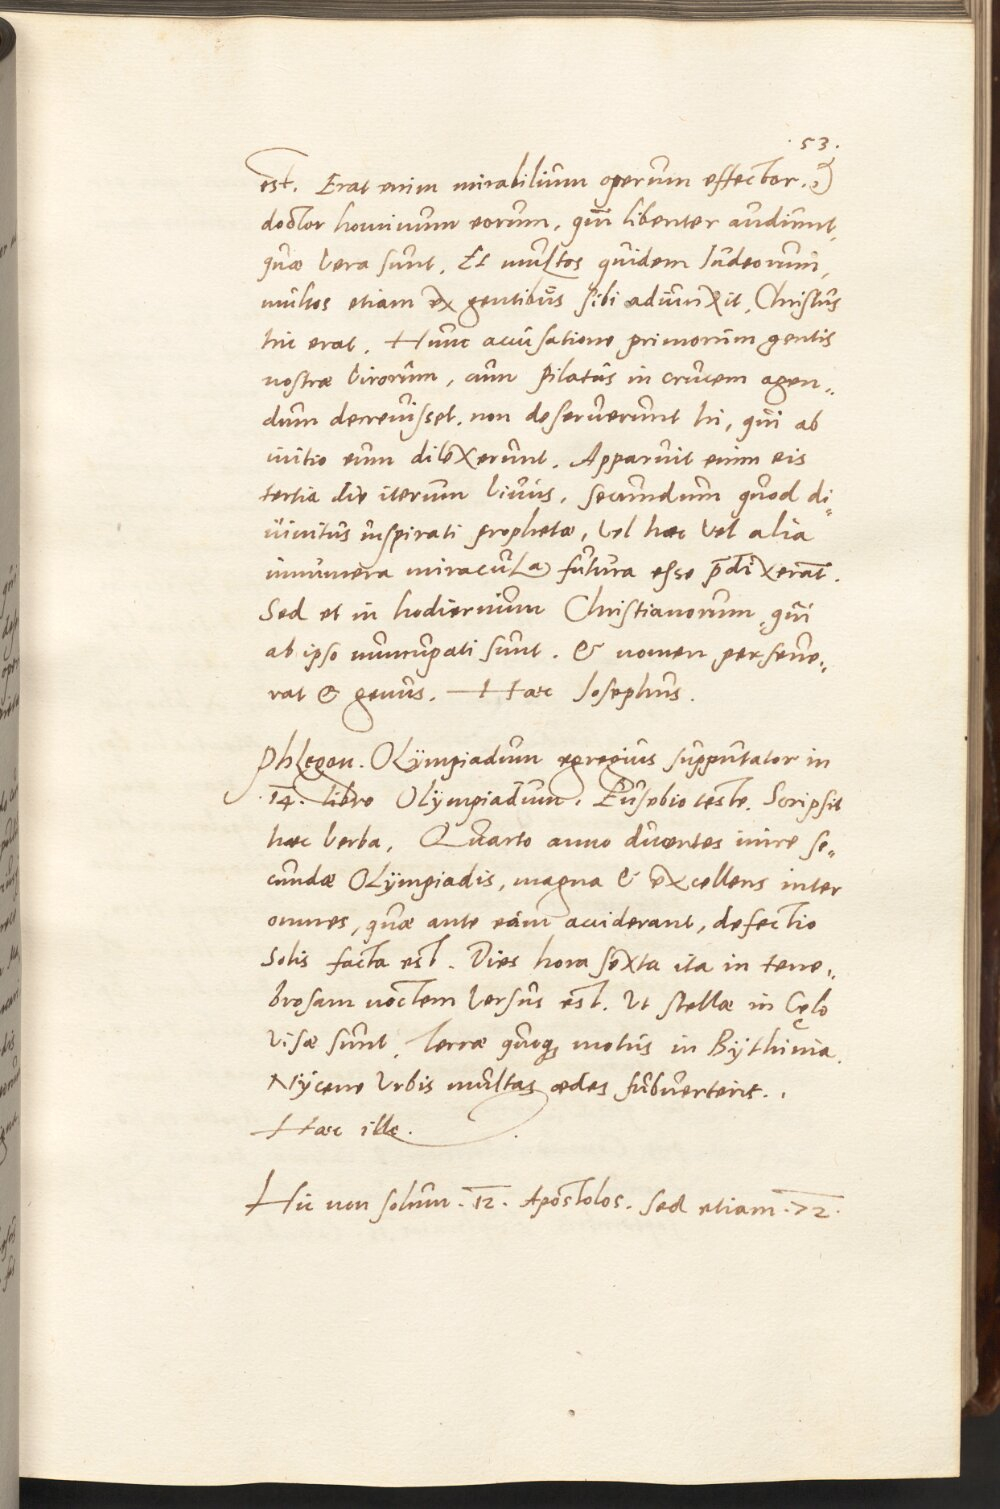 . 53 .
est. Erat enim mirabilium operum effector. &
doctor hominum eorum, qui libenter audiunt,
quæ vera sunt. Et multos quidem Iudeorum,
multos etiam ex gentibus sibi adiunxit. Christus
hic erat. Hunc accusatione primorum gentis
nostræ virorum, cum Pilatus in crucem agen„
dum decreuisset. non deseruerunt hi, qui ab
initio eum dilexerunt. Apparuit enim eis
tertia die iterum viuus, secundum quod di„
uinitus inspirati prophetæ, vel hæc vel alia
innumera miracula futura esse p̄dixerāt.
Sed et in hodiernum Christianorum, qui
ab ipso nuncupati sunt. & nomen perseue„
rat & genus. Hæc Iosephus.
Phlegon. Olÿmpiadum egregius supputator in
.14. libro Olÿmpiadum. Eusebio teste. Scripsit
hæc verba, Quarto anno ducentesimæ se„
cundæ Olÿmpiadis, magna & excellens inter
omnes, quæ ante eam acciderant, defectio
Solis facta est. Dies hora sexta ita in tene„
brosam noctem versus est. Vt stellæ in Cęlo
visæ sunt, terræ quoqȝ motus in Bÿthinia.
Nÿcenæ vrbis multas ædes subuerterit..
Hæc ille.
Hic non solum .12. Apostolos. sed etiam .72.